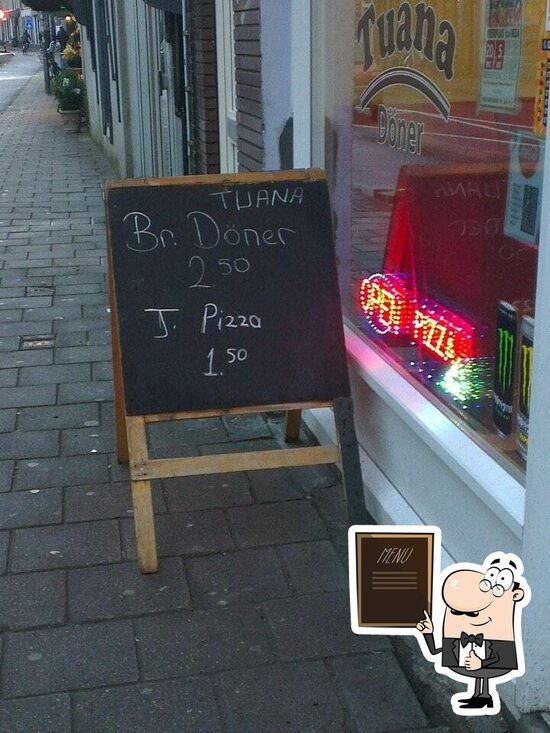 TUANA
Br. Döner
2.50
T. Pizza
1.50
Tuana
Döner
OPEN
PIZZA
MONSTER
MENU